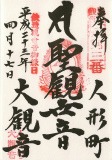 奉拝
三番
人形町
聖観世音
大観音
平成二十三年
四月十七日